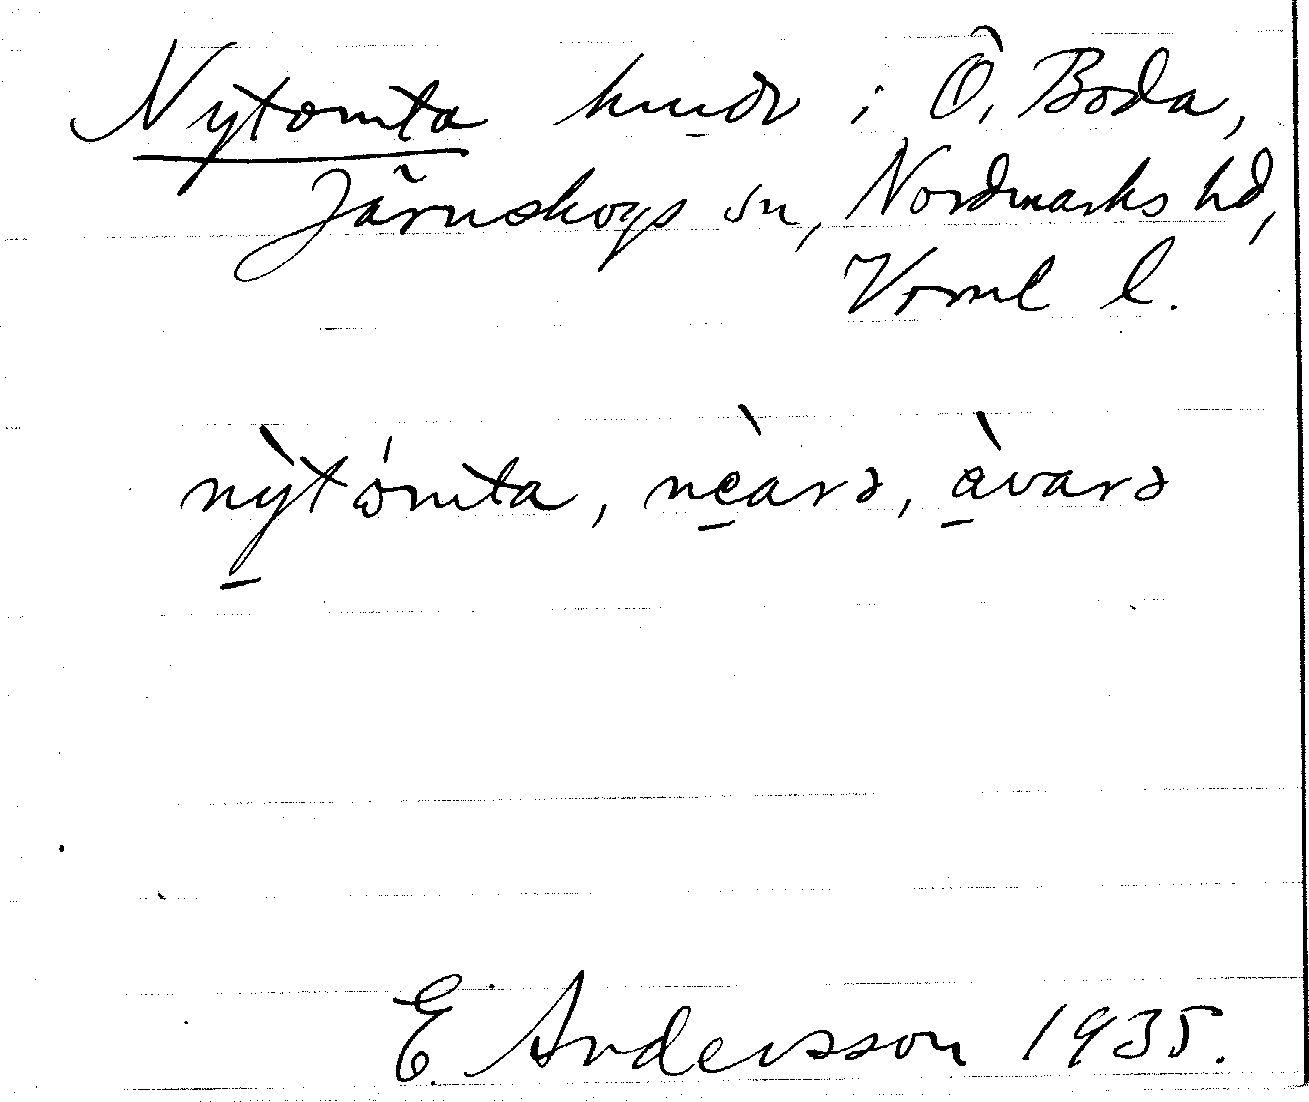 Nytomta hmdr i Ö. Boda,
Järnskogs sn, Nordmarks hd,
Vrml l.
nỳtómta, nèarə, àvarə
E. Andersson 1935.